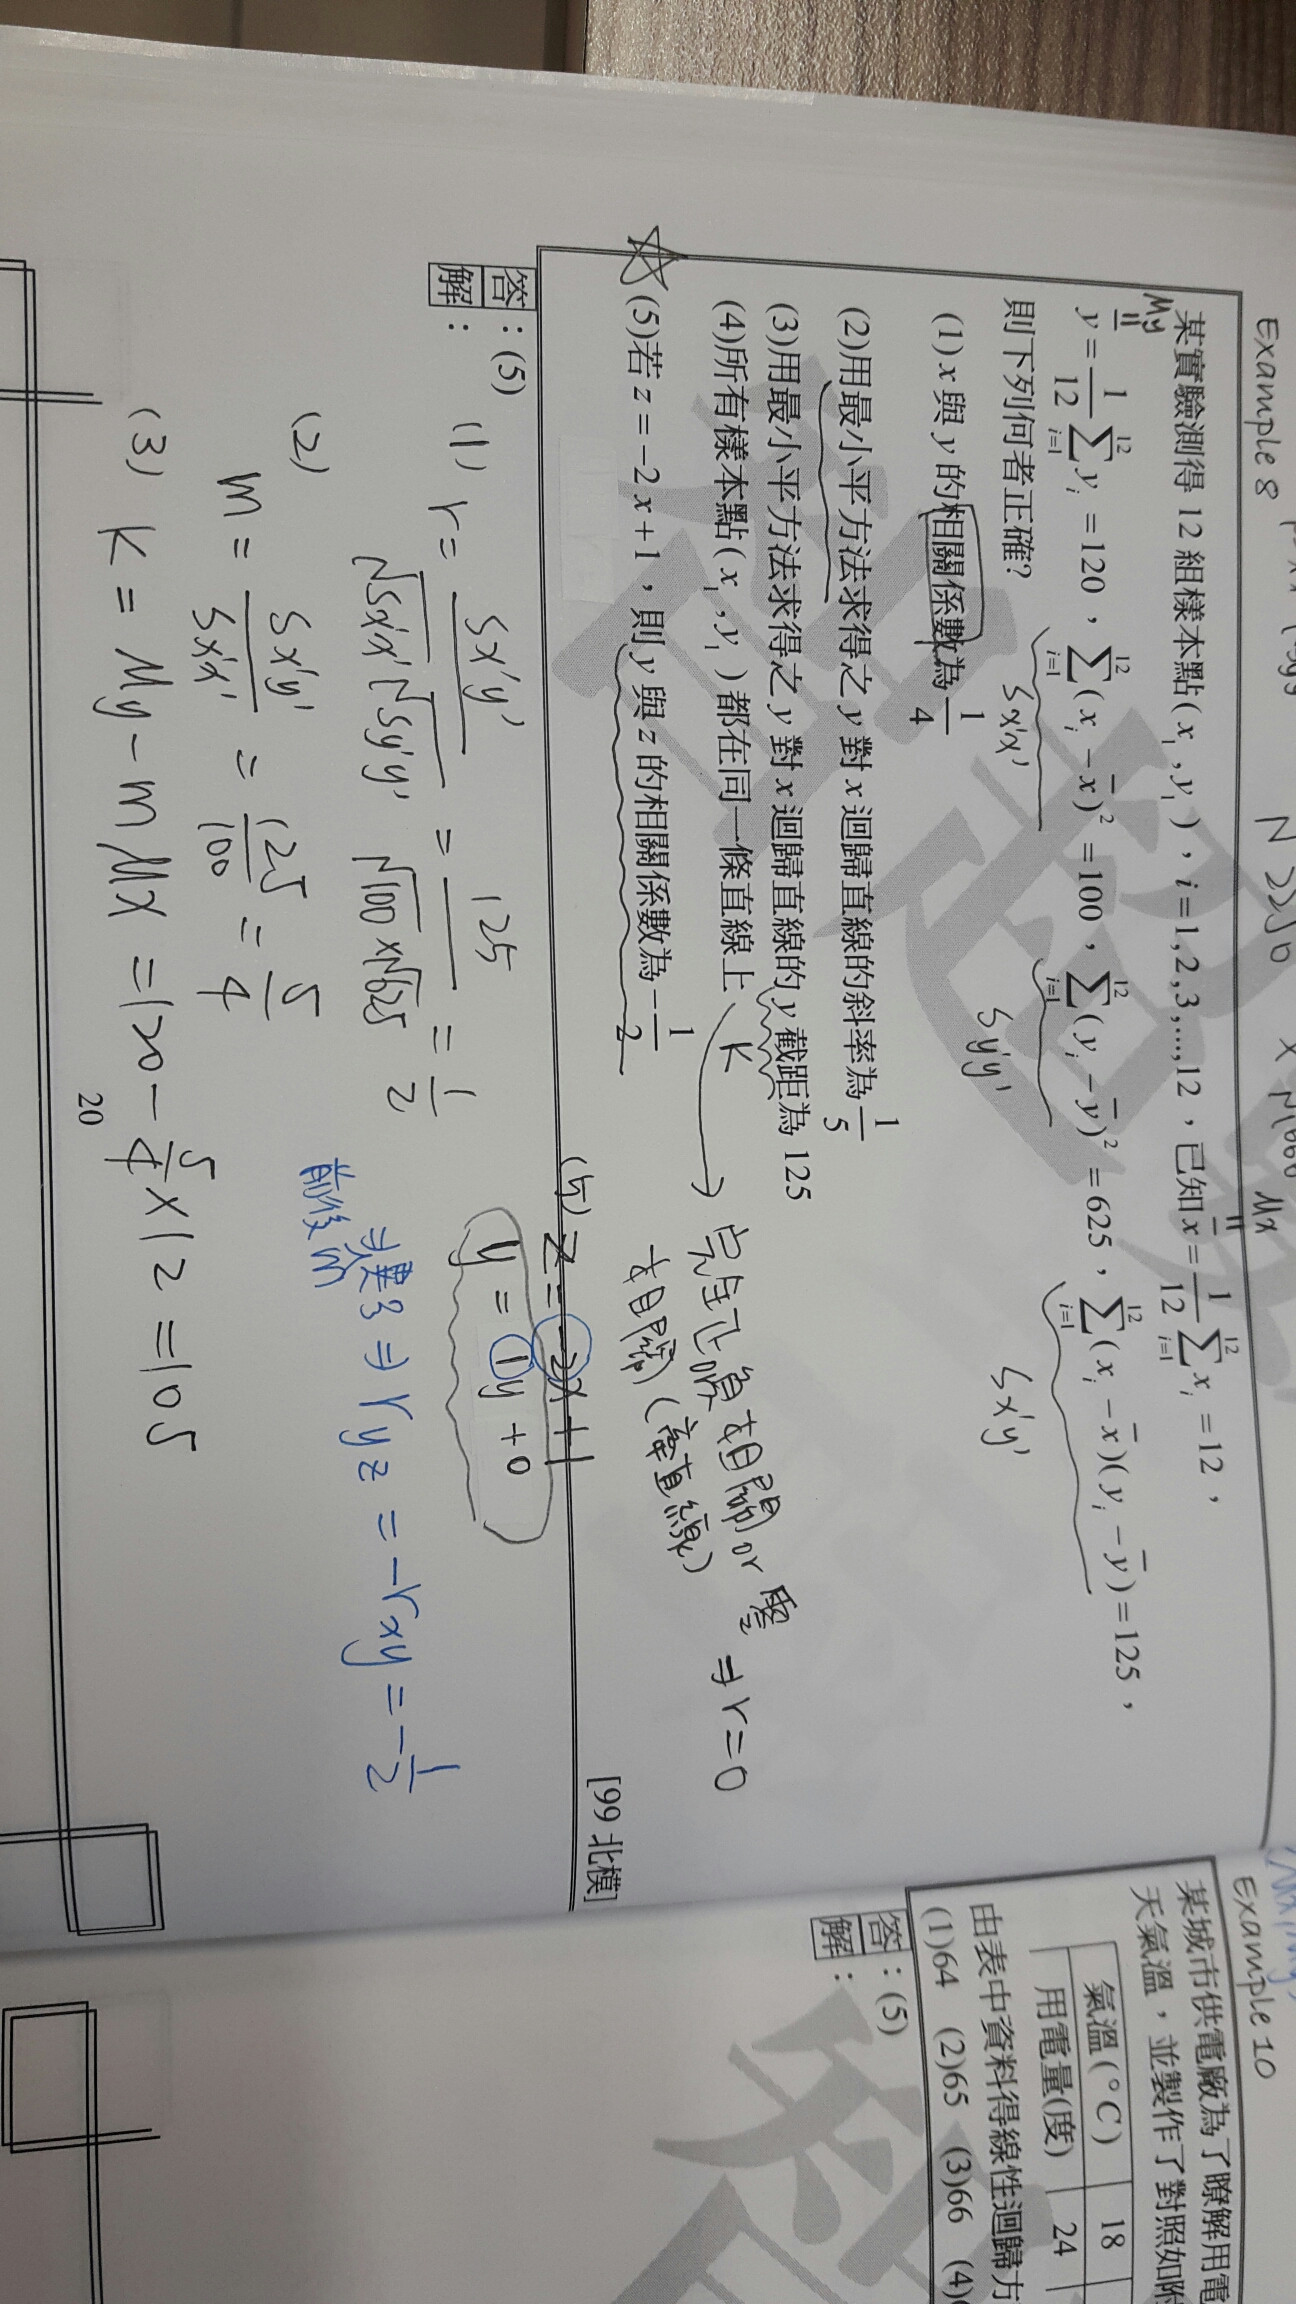 Example 8
某實驗測得 12 組樣本點(x_i , y_i)，i=1,2,3,...,12，已知 x̄ = 1/12 Σ_{i=1}^{12} x_i = 12，
Mx
My
ȳ = 1/12 Σ_{i=1}^{12} y_i = 120，Σ_{i=1}^{12} (x_i − x̄)² = 100，Σ_{i=1}^{12} (y_i − ȳ)² = 625，Σ_{i=1}^{12} (x_i − x̄)(y_i − ȳ) = 125，
Sx'x' Sy'y' Sx'y'
則下列何者正確?
(1) x 與 y 的相關係數為 1/4
(2)用最小平方法求得之 y 對 x 迴歸直線的斜率為 1/5
(3)用最小平方法求得之 y 對 x 迴歸直線的 y 截距為 125
K
(4)所有樣本點(x_i , y_i)都在同一條直線上
→ 完全正負相關 or 零
相關(鉛直線) ⇒ r=0
(5)若 z = −2x+1，則 y 與 z 的相關係數為 −1/2
[99 北模]
答：(5)
解：
(1) r = Sx'y' / √Sx'x' √Sy'y' = 125 / √100 × √625 = 1/2
(2)
m = Sx'y' / Sx'x' = 125/100 = 5/4
(3) K = My − m Mx = 120 − 5/4 × 12 = 105
(5) z = −2x+1
y = 1y+0
⇒ r yz = −r xy = −1/2
前後 m
20
Example 10
某城市供電廠為了瞭解用電
天氣溫，並製作了對照如附
氣溫(°C) 18
用電量(度) 24
由表中資料得線性迴歸方
(1)64 (2)65 (3)66 (4)
答：(5)
解：